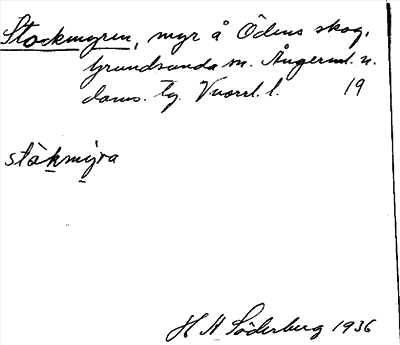 Stockmyren, myr å Ödens skog,
Grundsunda sn. Ångerml. n.
doms. tg. Vnorrl. l. 19
stòkmýra
H A Söderberg 1936